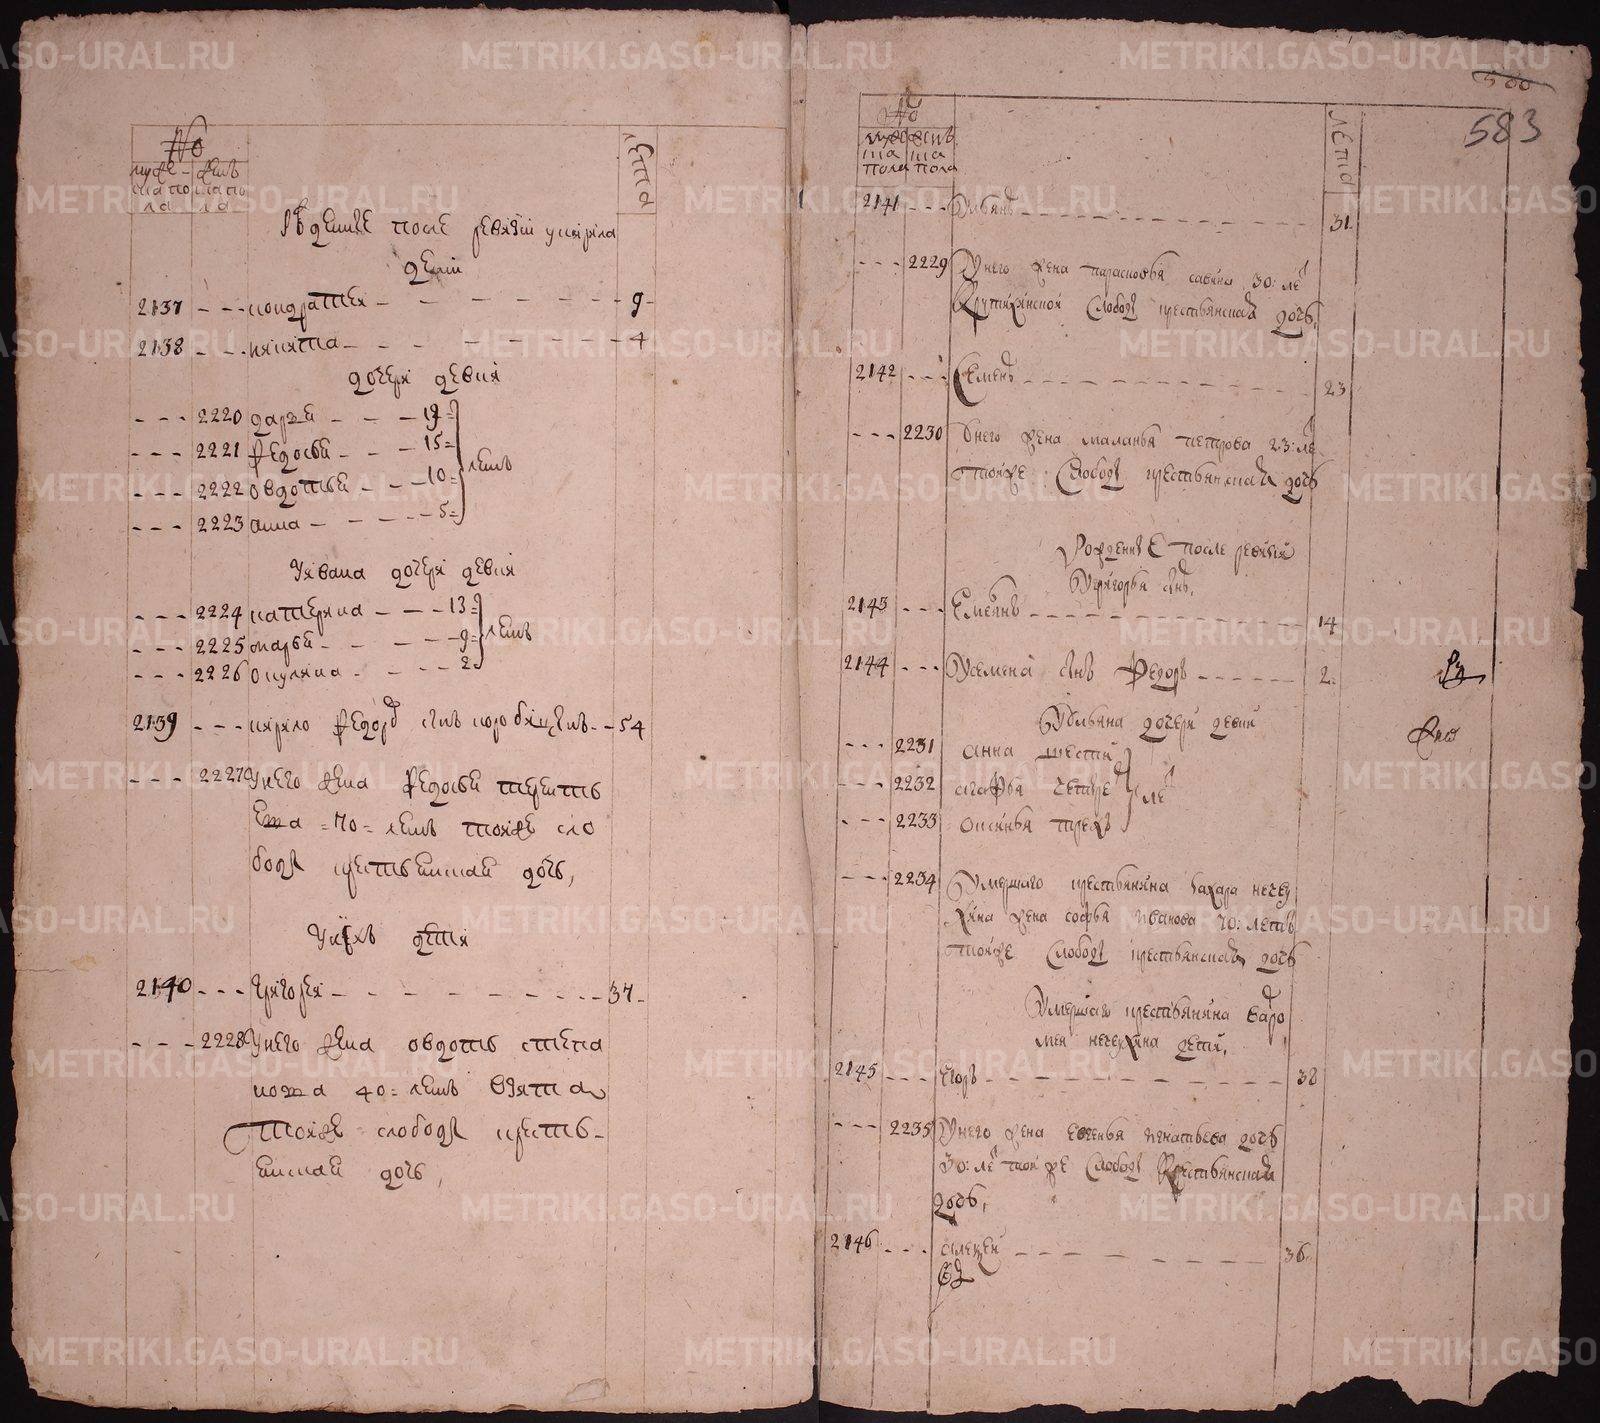 №
муже-
ска по
ла
женс
ка по
ла
лѣта
после ревизии
дети
2137 - - - кондратеи - - - - - - 9
2138 - - - никита - - - - - - 4
дочери девки
- - - 2220 дарьи - - - 19=
- - - 2221 федосьи - - - 15=
- - - 2222 овдотьи - - - 10=
летъ
- - - 2223 анна - - - - 5=
Уивана дочери девки
- - - 2224 катерина - - - 13=
- - - 2225 марьи - - - - 9=
летъ
- - - 2226 окулина - - - - 2
2139 - - - кирило федоръ снъ коробицынъ - - 54
- - - 2227 Унего жена федосьи терентъ
ева =70= летъ тояже сло
боды кресть енскаи дочь,
Унихъ дети
2140 - - - григореи - - - - - - 37
- - - 2228 Унего жена овдоть степа
нова 40= летъ взята
тояже слободы кресть-
енскаи дочь,
500
583
№
муже
ска
пола
женс
ка
пола
лѣта
2141 - - - Ульянъ - - - - - - 31
- - - 2229 Унего жена парасковья савина 30: ле
слободы крестьянская дочь,
2142 - - - Семенъ - - - - - - 23
- - - 2230 Унего жена маланья петрова 23: ле
тоиже Слободы крестьянская дочь
Рожденные после ревизии
Угригорья снъ,
2143 - - - Емельянъ - - - - - - 14
2144 - - - Усемена снъ Федоръ - - - - - - 2
Уульяна дочери девки
- - - 2231 анна шести
- - - 2232 агафья четыре
ле
- - - 2233 оксинья трехъ
- - - 2234 Умершаго крестьянина захара нечеу
хина жена софья Иванова 70: летъ
тоиже Слободы крестьянская дочь
Умершаго крестьянина варфо
мея нечеухина дети,
2145 - - - Егоръ - - - - - - 38
- - - 2235 Унего жена евгенья игнатьева дочь
30: ле тои же Слободы Крестьянская
дочь,
2146 - - - алексеи - - - - - - 36